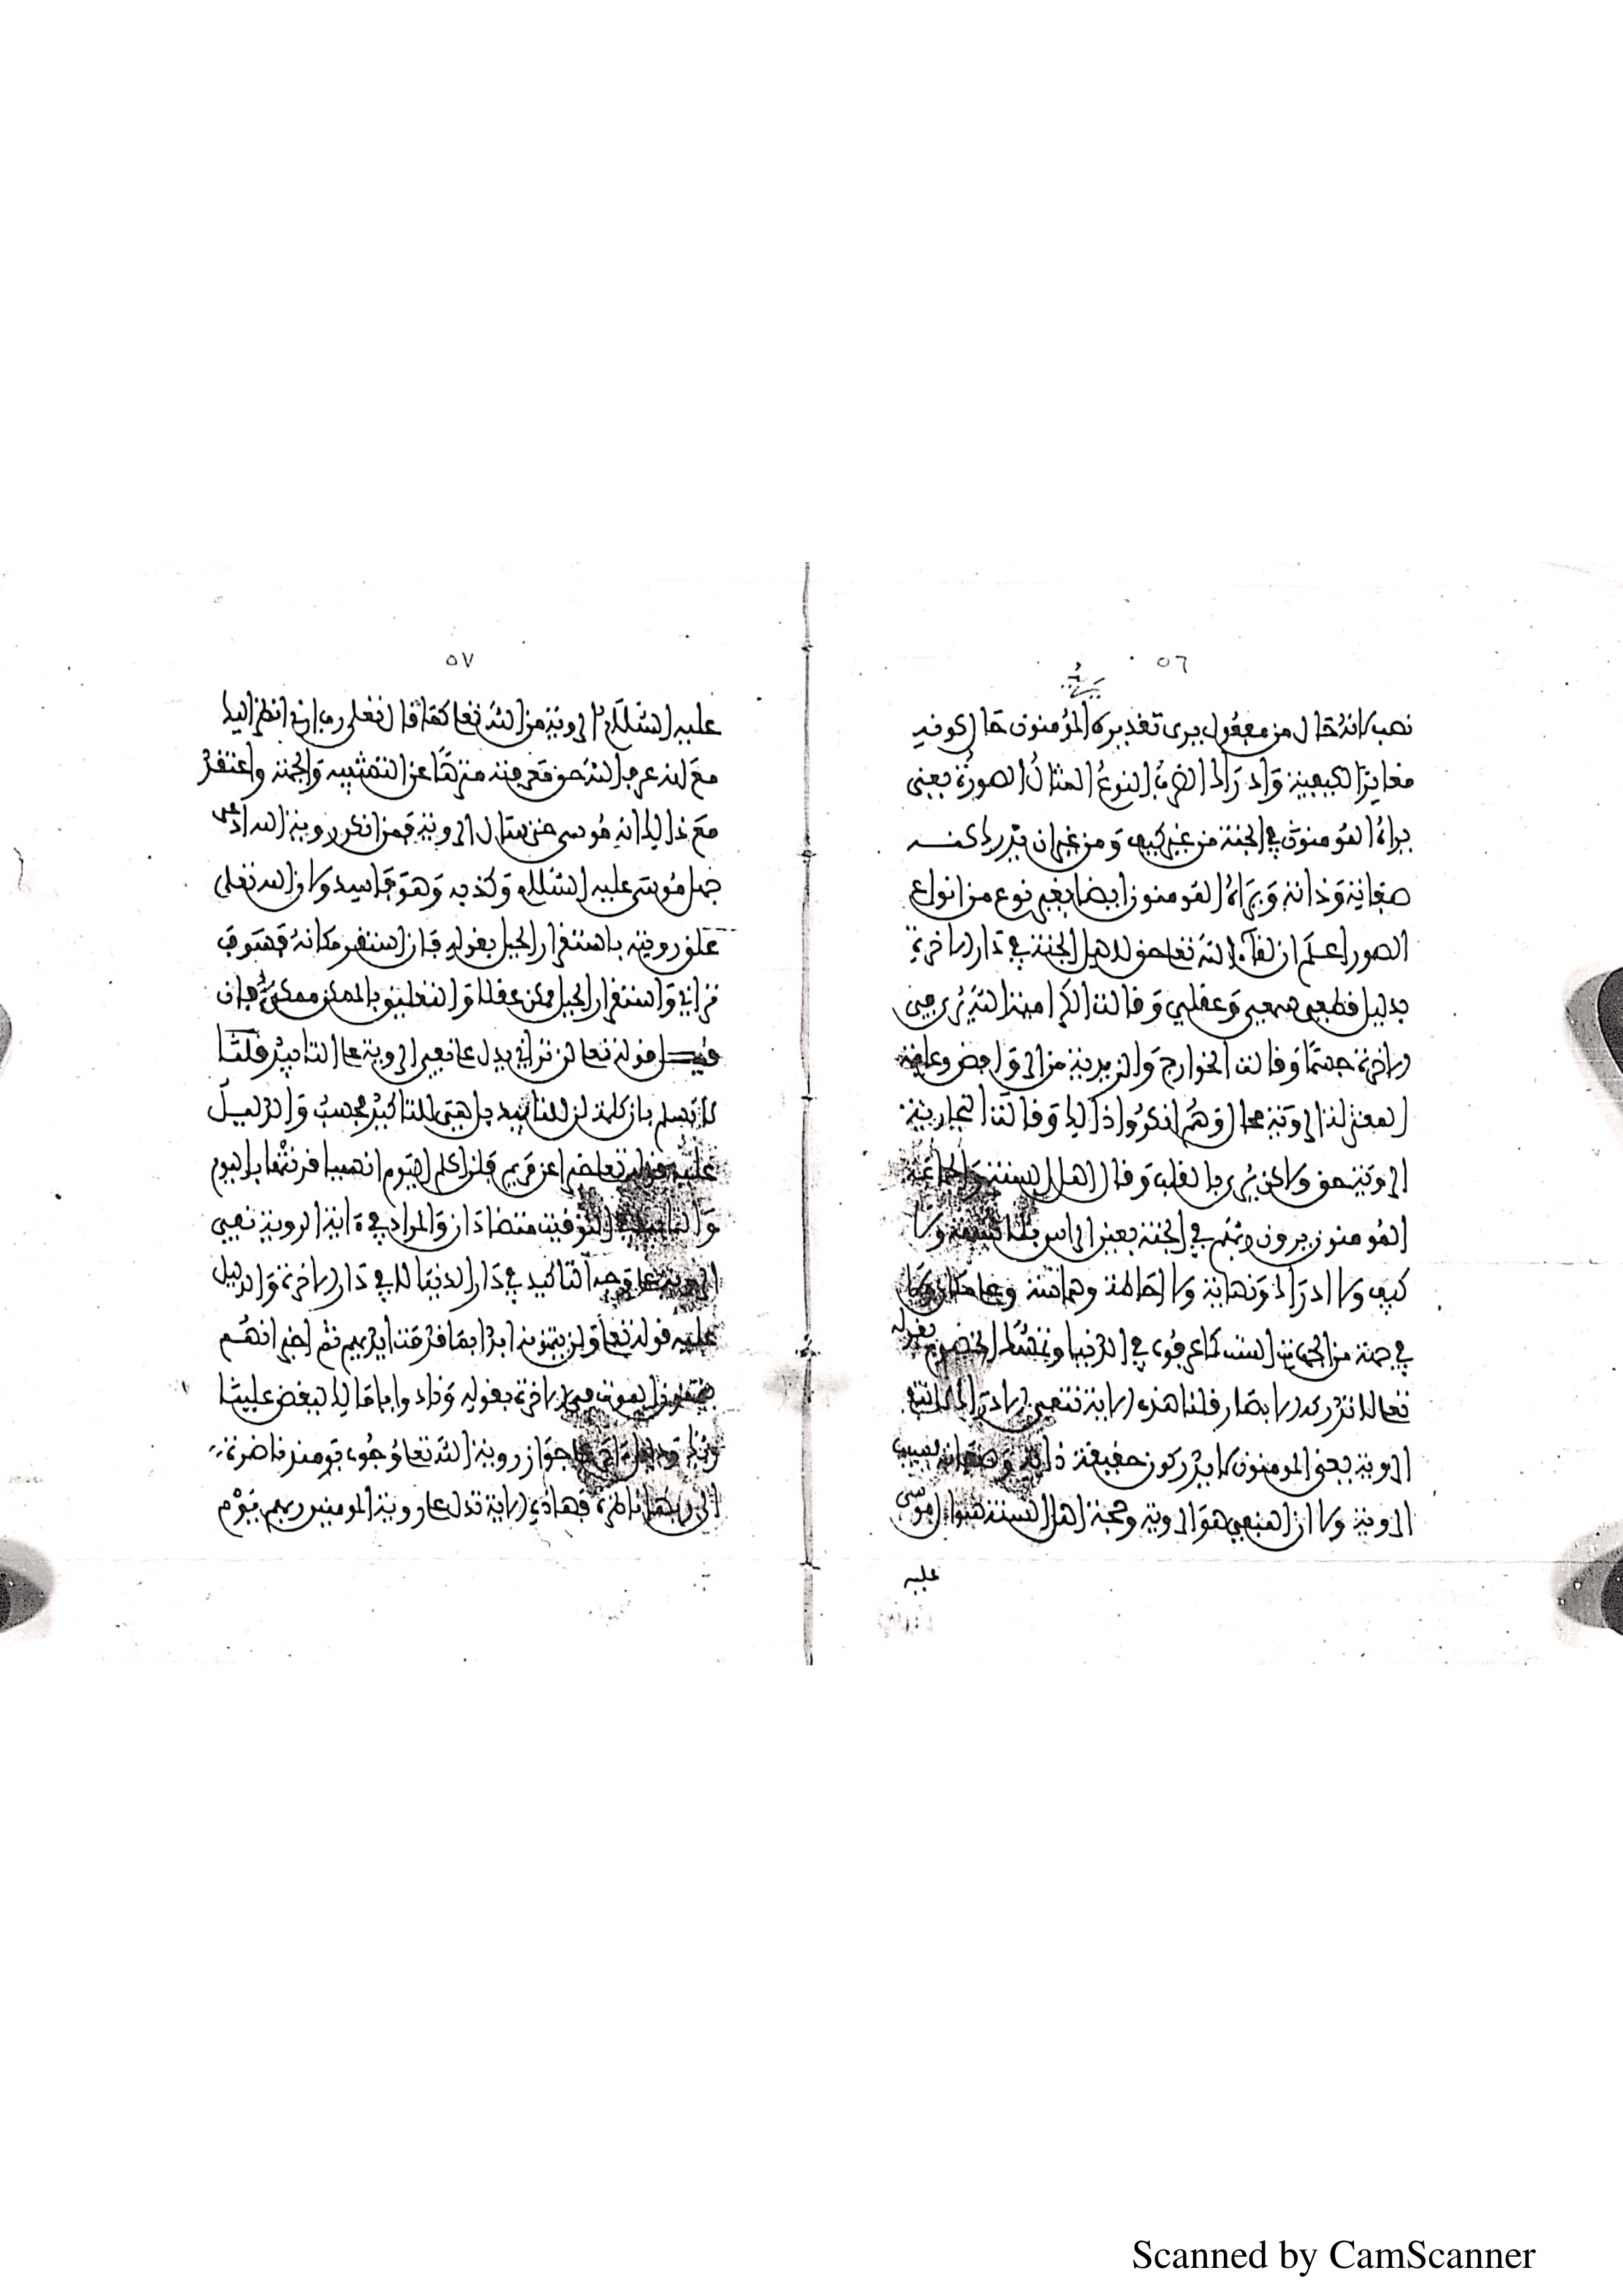 ٥٦
نصب لانه حال من مفعول يرى تقديره المؤمنون حال كونه
مغايرا الكيفية وادراك الضرب النوع المثال الصورة يعنى
يراه المومنون في الجنة من غير كيف ومن غير ان يدرك كنه
صفاته وذاته ويراه المومنون ايضا بغير نوع من انواع
الصور اعلم ان لقاء الله تعا حق لاهل الجنة في دار الاخرة
بدليل قطعي سمعي وعقلي وقالت الكرامية الله يرى في
الاخرة جسما وقالت الخوارج والزيدية من الروافض وعامة
المعتزلة الروية محال وهم انكروا ذالك وقالت النجارية
الروية حق ولاكن يرى بالقلب وقال اهل السنة والجماعة
المومنون يرون ربهم في الجنة بعين الراس بلا تشبيه ولا
كيف ولا ادراك ونهاية ولا احاطة
في جهة من الجهات الست كما عرفوه في الدنيا وتمسك الخصم بقوله
تعالى لا تدركه الابصار قلنا هذه الاية تنفي الادراك لا
الروية يعنى المومنون لا يدركون حقيقة ذاته وصفاته
الروية ولا ان المنفي هو الروية وحجة اهل السنة سؤال موسى
عليه
٥٧
عليه السلام الروية من الله تعا كما قال تعلى رب ارني انظر اليك
مع انه عرف الله حق معرفته منزها عن التشبيه والجهة واعتقد
مع ذالك انه موسى حتى سال الروية فمن انكر روية الله ادعى
جهل موسى عليه السلام وكذبه وهو فاسد ولان الله تعلى
علق رويته باستقرار الجبل بقوله فان استقر مكانه فسوف
تراني واستقرار الجبل ممكن عقلا والتعليق بالممكن ممكن فان
قيل قوله تعا لن تراني يدل على نفي الروية على التابيد قلنا
لا نسلم بان كلمة لن للتابيد بل هي للتاكيد فحسب والدليل
عليه قوله تعا خبرا عن مريم فلن اكلم اليوم انسيا قرنها باليوم
والتابيد والتوقيت متضادان والمراد في ءاية الروية نفي
الروية على وجه التاكيد في دار الدنيا لا في دار الاخرة والدليل
عليه قوله تعا ولن يتمنوه ابدا بما قدمت ايديهم ثم اخبر انهم
يتمنون الموت في الاخرة بقوله ونادوا يا مالك ليقض علينا
ربك جواز روية الله تعا وجوه يومئذ ناضرة
الى ربها ناظرة فهاذه الاية تدل على روية المومنين ربهم يوم
Scanned by CamScanner